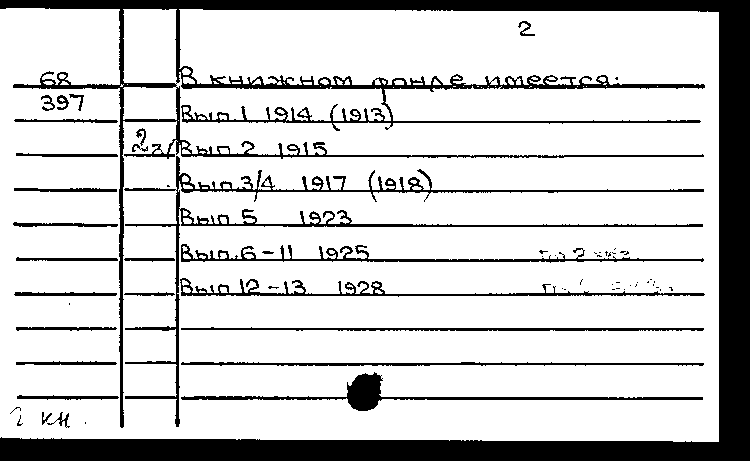 2
68 В книжном фонде имеется:
397
Вып. 1 1914 (1913)
2э/ Вып. 2 1915
Вып. 3/4 1917 (1918)
Вып. 5 1923
Вып. 6-11 1925 по 2 экз.
Вып. 12-13 1928
кн.